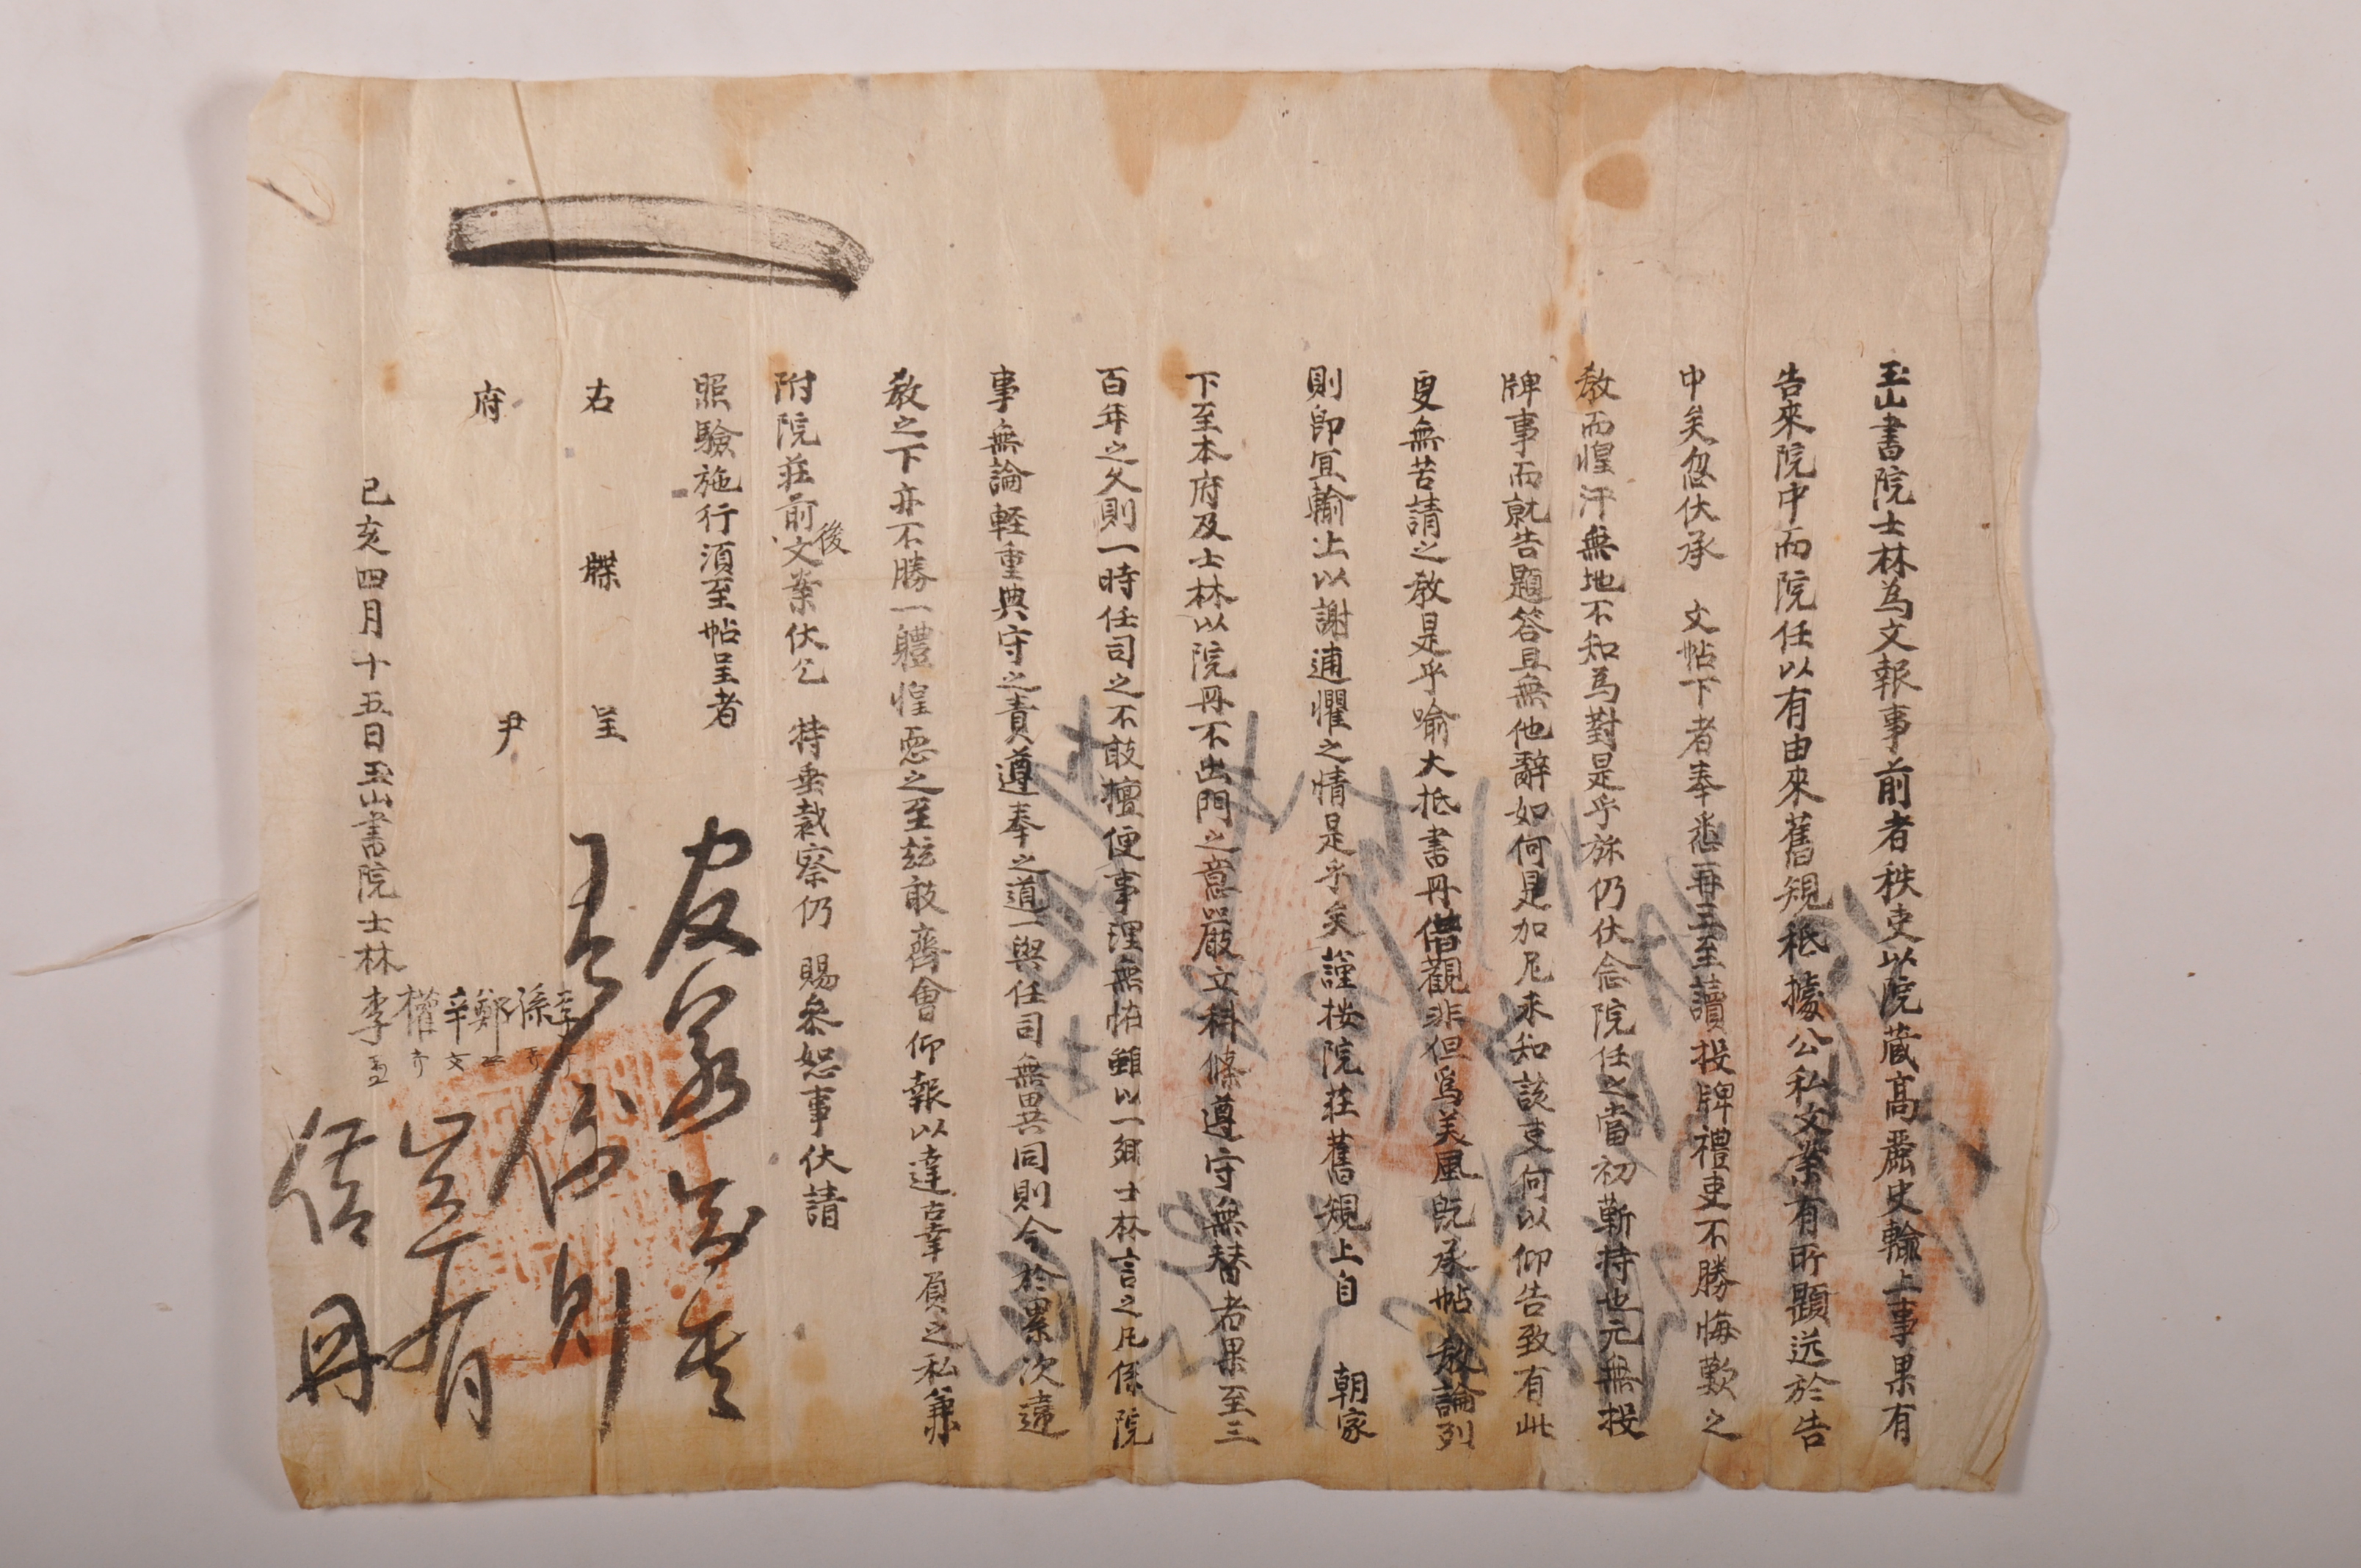 玉山書院士林爲文報事前者秩吏以院蔵高麗史輸上事果有
告來院中而院任以有由來舊規秪據公私文案有所題送於告
中矣忽伏承 文帖下者奉悉再三至讀投牌禮吏不勝悔歎之
教而惶汗無地不知爲對是乎旀仍伏念院任之當初靳持也元無投
牌事而就告題答且無他辭如何是加尼未知該吏何以仰告致有此
更無苦請之教是乎喩大抵書冊借觀非但爲美風旣承帖教論列
則卽宜輸上以謝逋懼之情是乎矣謹按院莊舊規上自 朝家
下至本府及士林以院冊不出門之意嚴立科條遵守無替者果至三
百年之久則一時任司之不敢擅便事理無恠雖以一鄕士林言之凡係院
事無論輕重典守之責遵奉之道一與任司無異同則今於累次違
教之下亦不勝一軆惶恧之至玆敢齊會仰報以達辜負之私兼
附院莊前後文案伏乞 特垂裁察仍 賜叅恕事伏請
照驗施行須至帖呈者
右 牒 呈
府 尹
己亥四月十五日玉山書院士林 李 權 辛 鄭 孫 李